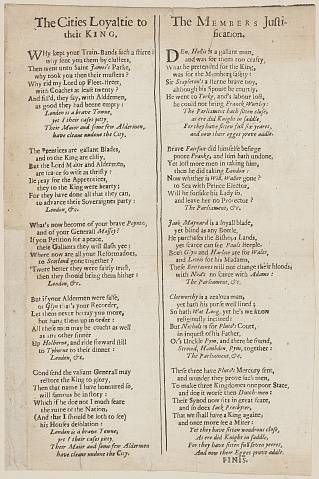 The Cities Loyaltie to
their KING.
WHy kept your Train-Bands such a stirre
why sent you them by clusters,
Then went unto Saint James's Parke,
why took you then their musters?
Why rid my Lord up Fleet-street,
with Coaches at least twenty?
And fill'd, they say, with Aldermen,
as good they had beene empty:
London is a brave Towne,
yet I their cases pity,
Their Maior and some few Aldermen,
have cleane undone the City.
The Prentices are gallant Blades,
and to the King are clifty,
But the Lord Maior and Aldermen,
are scarce so wise as thrifty:
He pay for the Apprentices,
they to the King were hearty:
For they have done all that they can,
to advance their Soveraignes party:
London, &c.
What's now become of your brave
and of your Generall Massey?
If you Petition for a peace,
these Gallants they will slash yee:
Where now are all your Reformadoes,
to Scotland gone together?
'Twere better they were fairly trust,
then they should bring them hither:
London, &c.
But if your Aldermen were false,
or Glyn that's your Recorder,
Let them never betray you more,
but hang them up in order:
All these men may be coucht as well
as any other sinner
Up Holborne, and ride forward still
to Tyburne to their dinner:
London, &c.
God send the valiant Generall may
restore the King to glory,
Then that name I have honoured so,
will famous be in story:
Which if he doe not I much feare
the ruine of the Nation,
(And that I should be loth to see)
his Houses desolation:
London is a brave Towne,
yet I their cases pity,
Their Maior and some few Aldermen
have cleane undone the City.
The MEMBERS Justi-
fication.
DEn. Hollis is a gallant man,
and was for them too crafty,
What he pretended for the King,
was for the Members safety:
Sir Stapleton's a sterne brave boy,
although his Spouse be courtly,
He went to and's labour lost,
he could not bring Franck Wortly:
The Parliament hath seven eggs,
as ere did Knight in saddle,
For they have seven full six yeares,
and now their egges prove addle.
Brave Fairfax did himselfe besiege
poore Franky, and him hath undone,
Yet lost more men in taking him,
then he did taking London:
Now whether is Will. Waller gone?
to Sea with Prince Elector,
Will he forsake his Lady so,
and leave her no Protector?
The Parliament, &c.
Jack Maynard is a loyall blade,
yet blind as any Beetle,
He purchases the Bishops Lands,
yet scarce can see Pauls Steeple.
Bob's Glyn and Harlow are for Wales,
and Lewis for his Madams,
These Brewers will not change their bloods;
with Noah's no Carre with Adams:
The Parliament, &c.
Clotworthy is a zealous man,
yet hath his purse well lined;
So hath Wat Long, yet he's we know
religiously inclined:
But Nichols is for Pluto's Court,
in inquest of his Father,
Or's Unckle Pym, and there he found,
Stroud, Hambden, Pym, together:
The Parliament, &c.
These three have Pluto's Mercury sent,
and wonder they prove such men,
To make three Kingdomes one poore State,
and doe it worse then Dutch-men:
Their Synod now sits in great feare,
and so does Jack Presbyter,
That we shall have a King againe,
and once more see a Miter:
Yet they have sitten wondrous close,
As ere did Knight in saddle,
For they have sitten full seven yeeres,
And now their Egges prove addle.
FINIS.